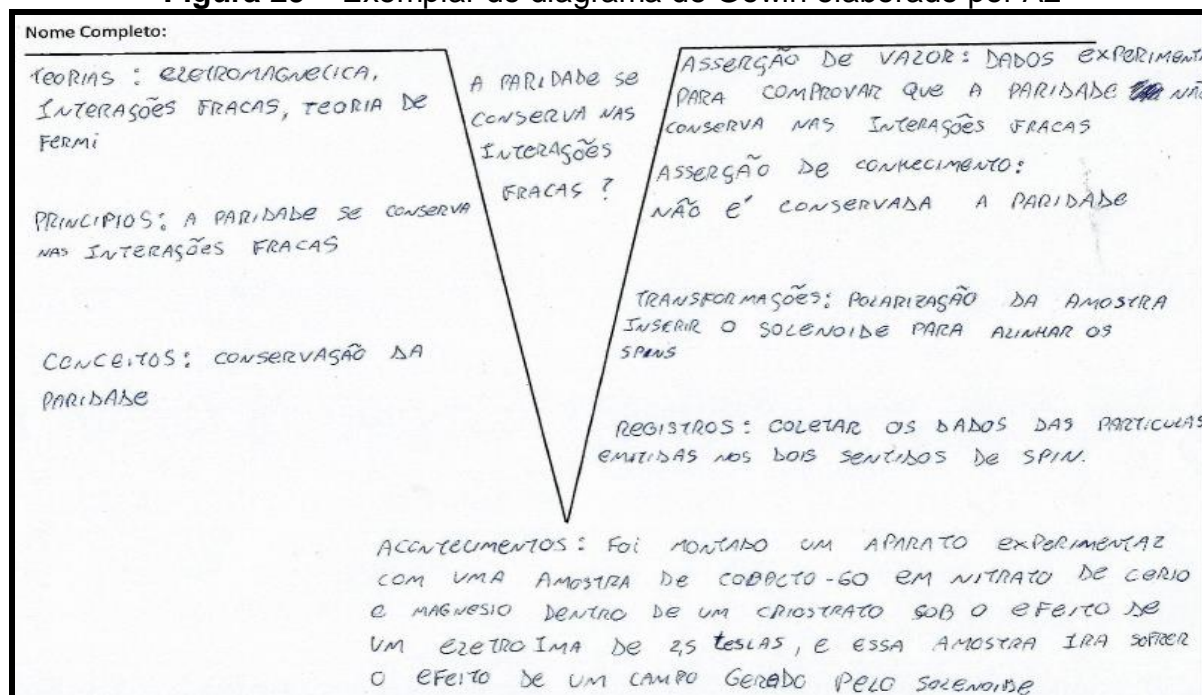 Figura 28 – Exemplar do diagrama de Gowin elaborado por A2
Nome Completo:
TEORIAS : ELETROMAGNETICA,
INTERAÇÕES FRACAS, TEORIA DE
FERMI
PRINCIPIOS: A PARIDADE SE CONSERVA
NAS INTERAÇÕES FRACAS
CONCEITOS: CONSERVAÇÃO DA
PARIDADE
A PARIDADE SE
CONSERVA NAS
INTERAÇÕES
FRACAS ?
ASSERÇÃO DE VALOR: DADOS EXPERIMENTA
PARA COMPROVAR QUE A PARIDADE NÃO
CONSERVA NAS INTERAÇÕES FRACAS
ASSERÇÃO DE CONHECIMENTO:
NÃO É CONSERVADA A PARIDADE
TRANSFORMAÇÕES: POLARIZAÇÃO DA AMOSTRA
INSERIR O SOLENOIDE PARA ALINHAR OS
SPINS
REGISTROS: COLETAR OS DADOS DAS PARTICULAS
EMITIDAS NOS DOIS SENTIDOS DE SPIN.
ACONTECIMENTOS: FOI MONTADO UM APARATO EXPERIMENTAL
COM UMA AMOSTRA DE COBALTO-60 EM NITRATO DE CERIO
E MAGNESIO DENTRO DE UM CRIOSTRATO SOB O EFEITO DE
UM ELETRO IMA DE 2,5 TESLAS, E ESSA AMOSTRA IRA SOFRER
O EFEITO DE UM CAMPO GERADO PELO SOLENOIDE